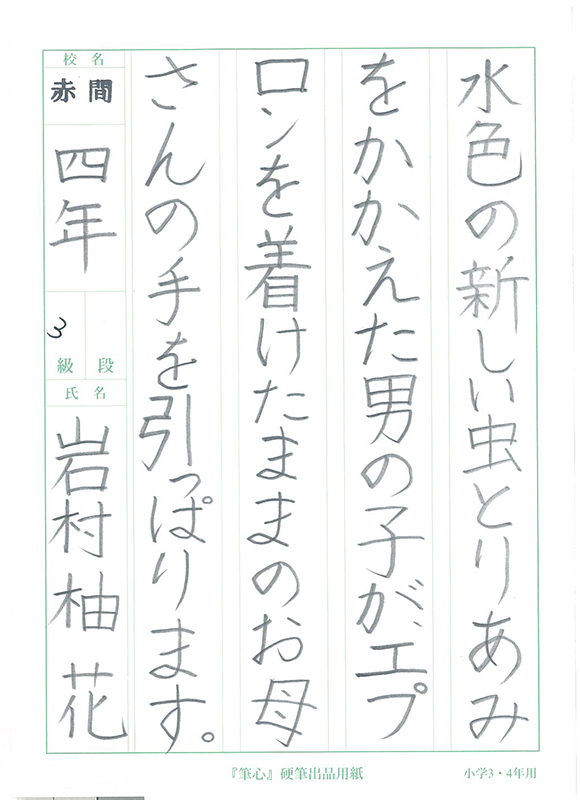 水色の新しい虫とりあみ
をかかえた男の子が、エプ
ロンを着けたままのお母
さんの手を引っぱります。
校名
赤間
四年
3
級 段
氏名
岩村柚花
『筆心』硬筆出品用紙
小学3・4年用